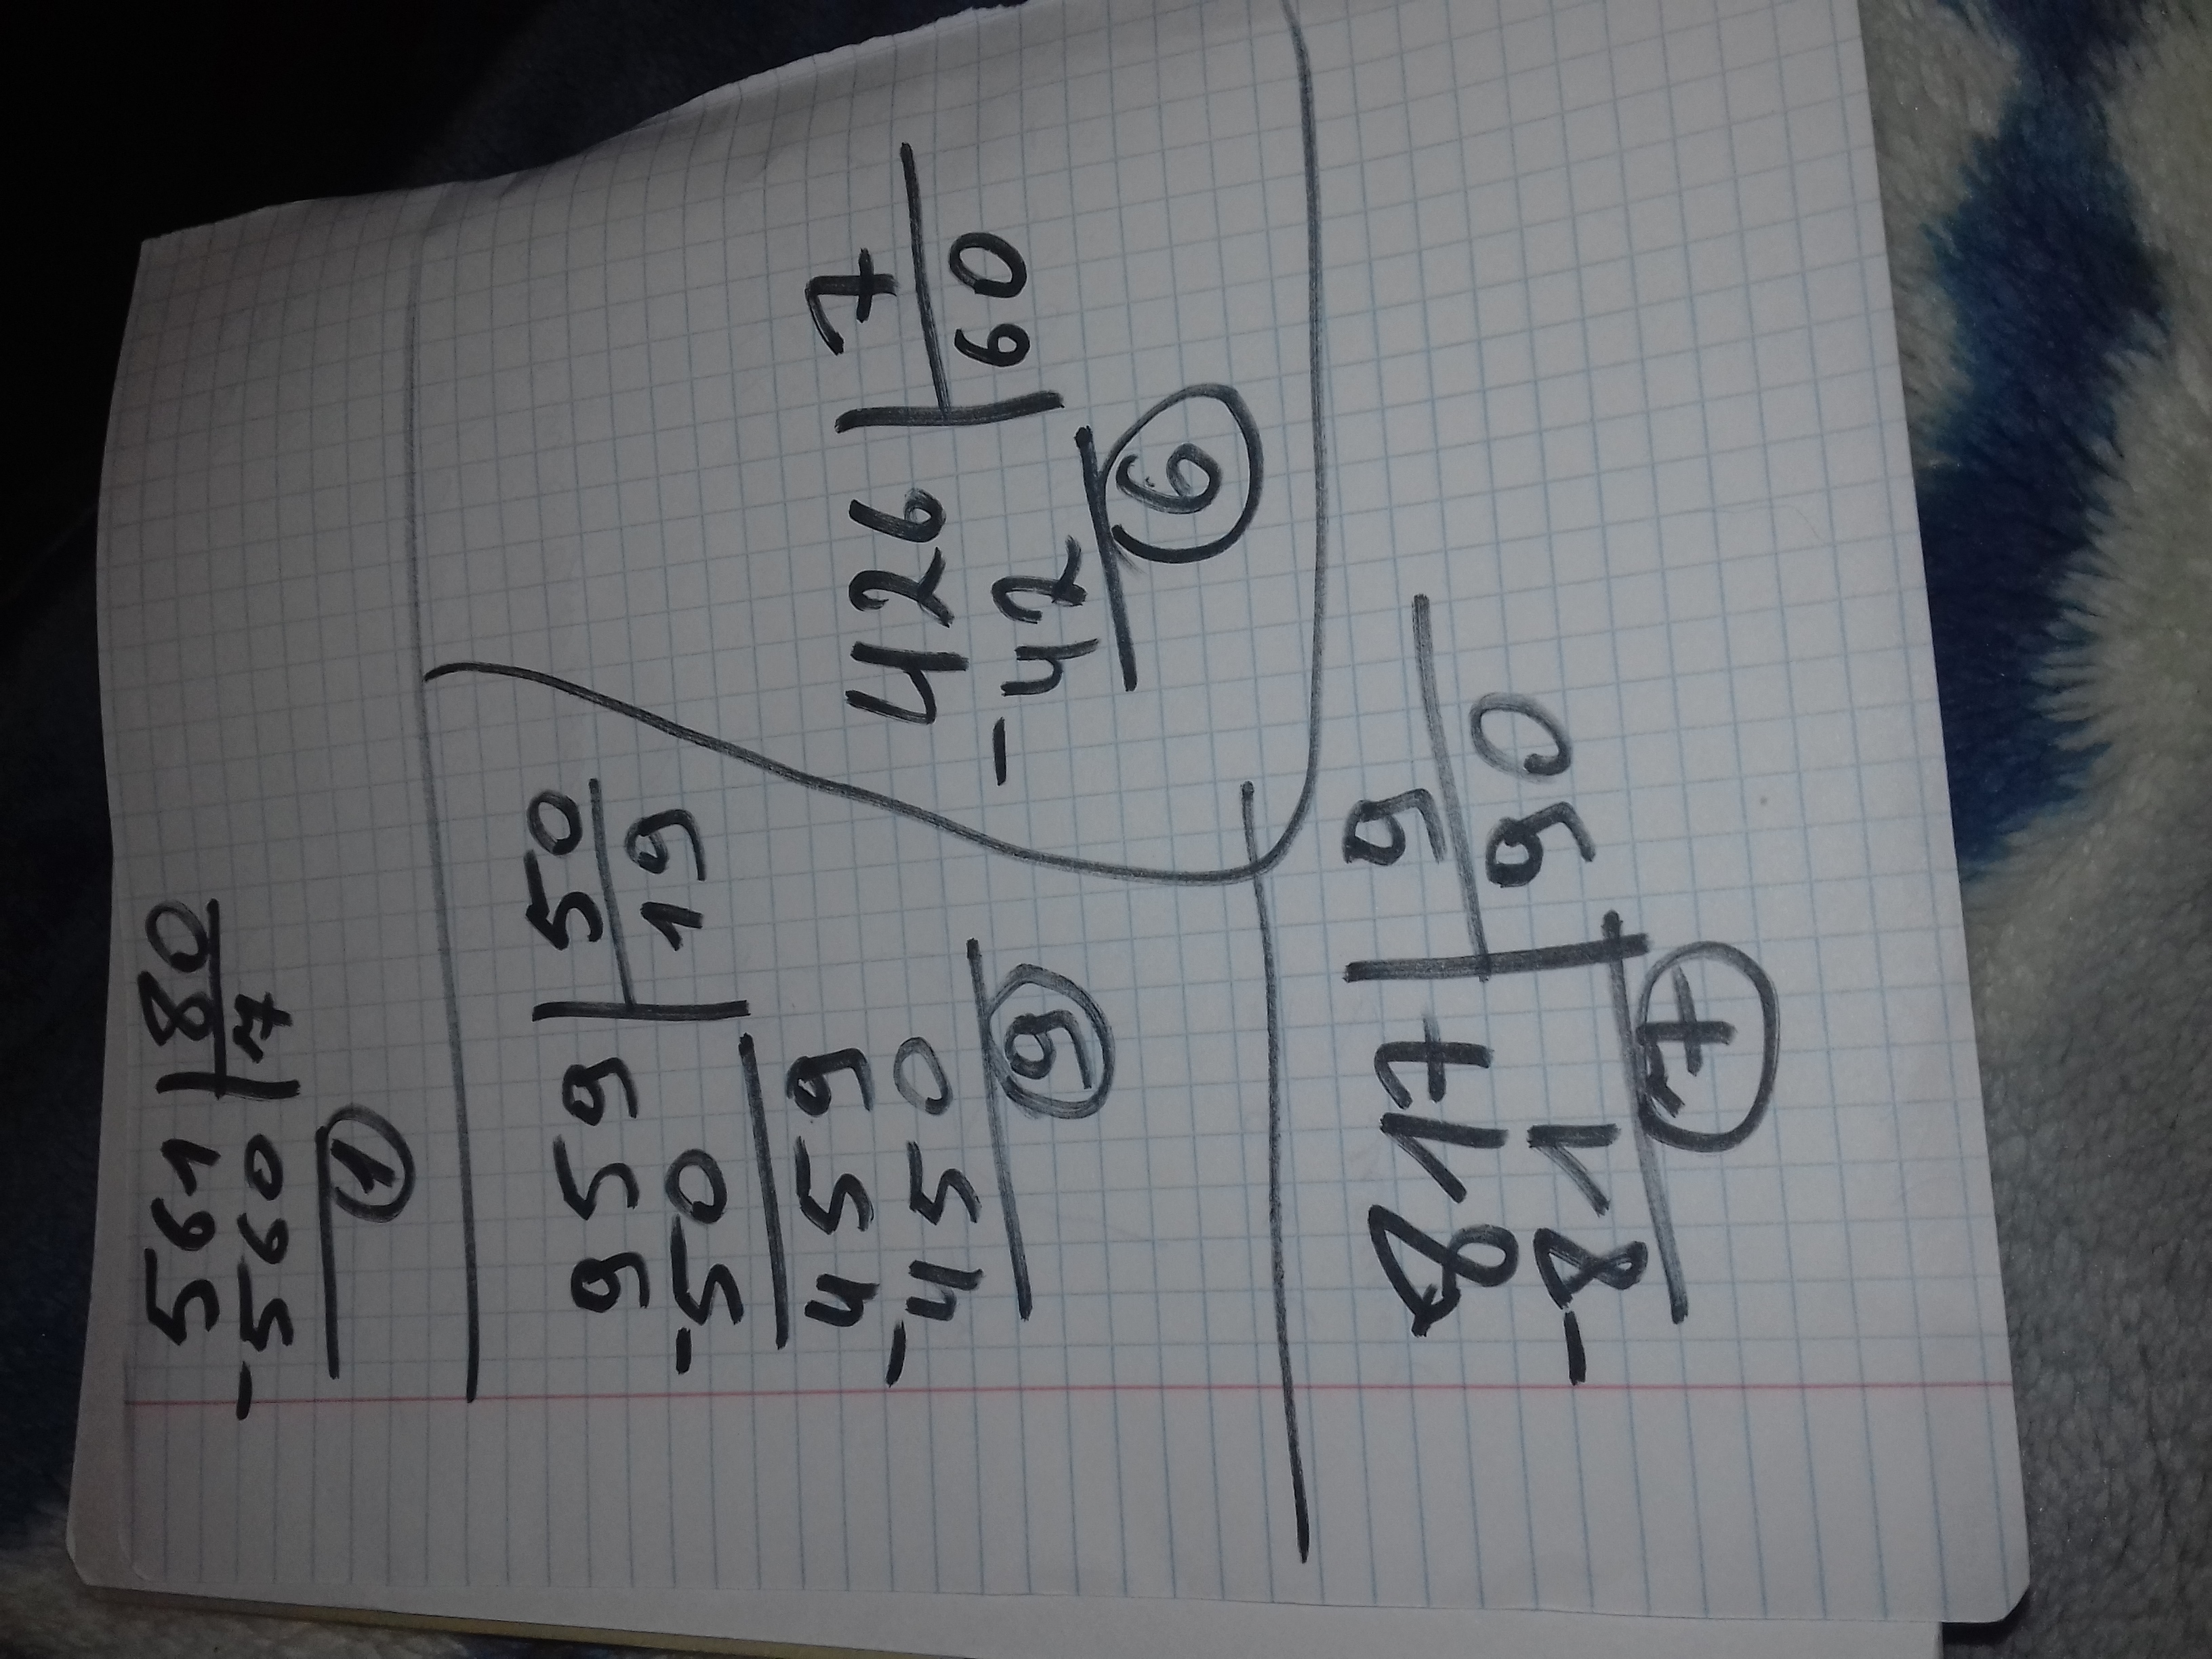 561 | 80
-560 | 7
1
959 | 50
-50 | 19
459
-450
9
426 | 7
-42 | 60
6
817 | 9
-81 | 90
7